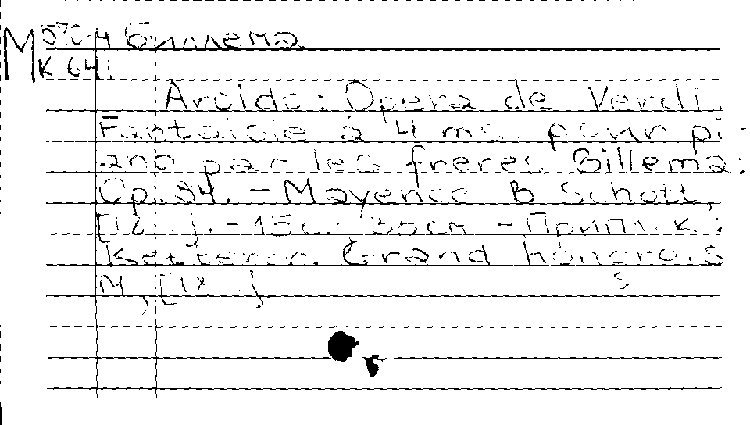 М Биллема
К 64
Aroldo: Opera de Verdi.
Fantaisie à 4 ms. pour pi-
ano par les frères Billema:
Op. 34. - Mayence B. Schott,
15 с. 35см - Припл. к.:
Ketterer. Grand honorais